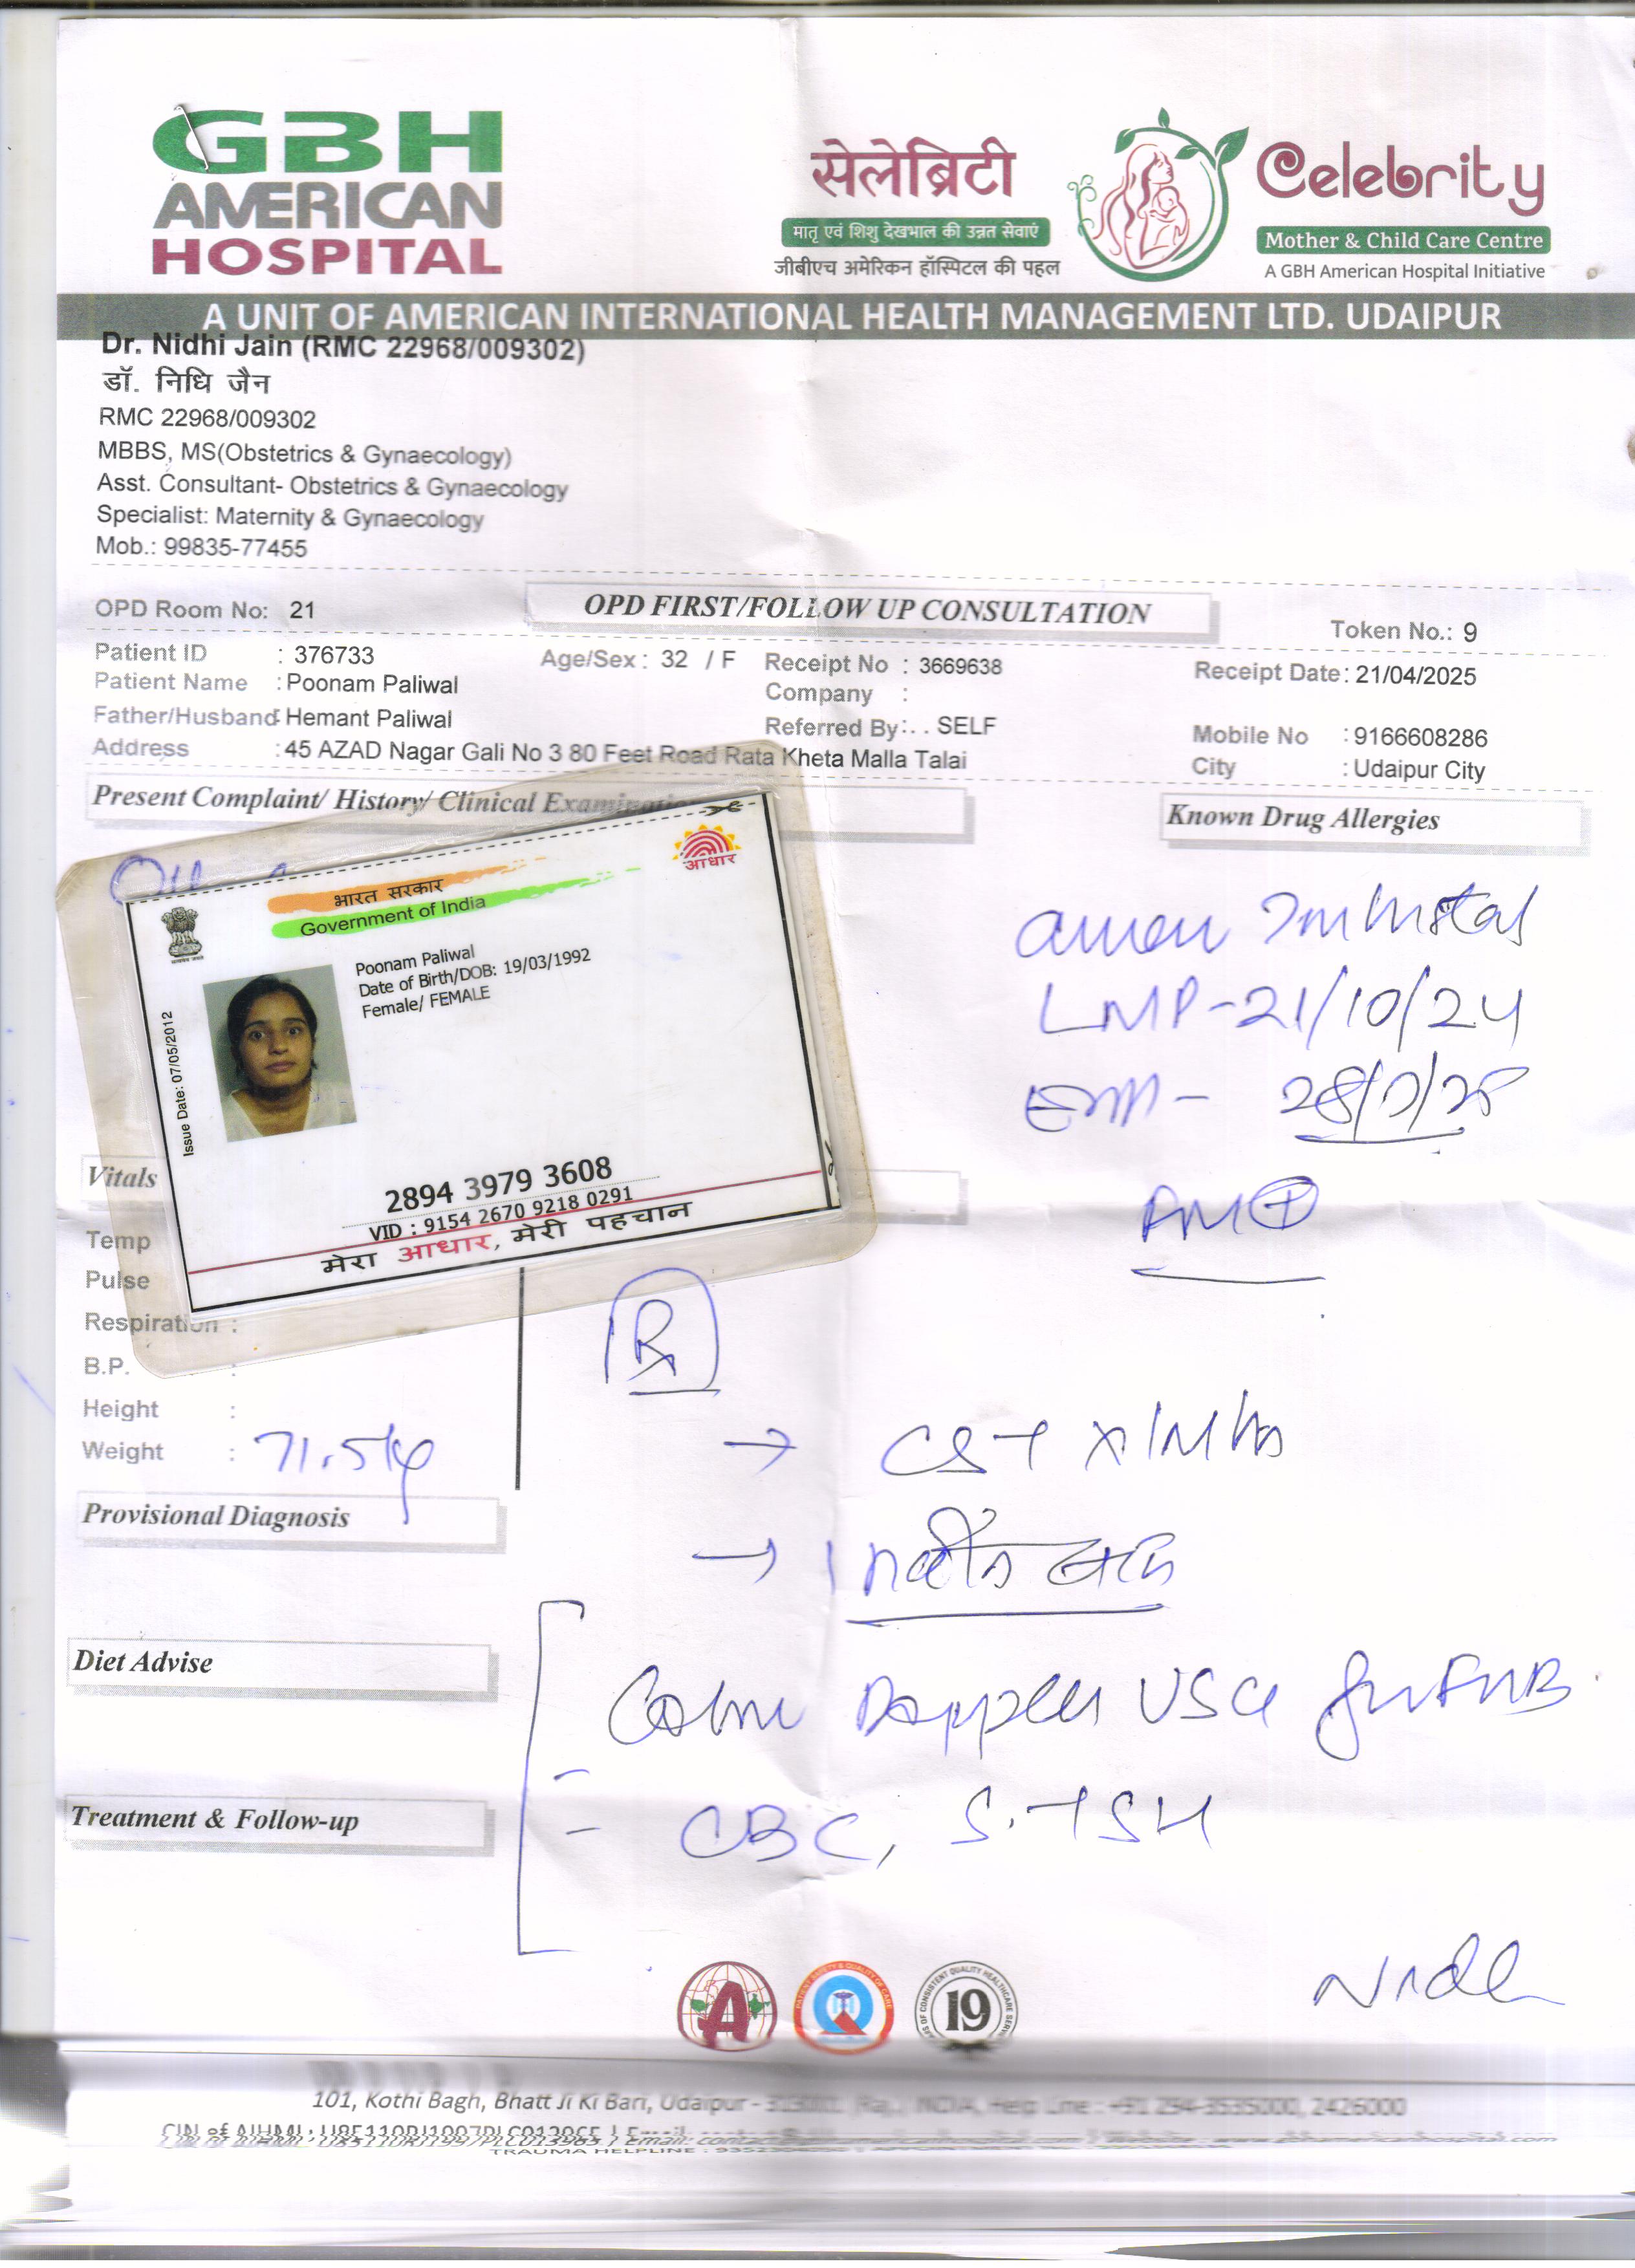 GBH
AMERICAN
HOSPITAL
सेलेब्रिटी
मातृ एवं शिशु देखभाल की उन्नत सेवाएं
जीबीएच अमेरिकन हॉस्पिटल की पहल
Celebrity
Mother & Child Care Centre
A GBH American Hospital Initiative
A UNIT OF AMERICAN INTERNATIONAL HEALTH MANAGEMENT LTD. UDAIPUR
Dr. Nidhi Jain (RMC 22968/009302)
डॉ. निधि जैन
RMC 22968/009302
MBBS, MS(Obstetrics & Gynaecology)
Asst. Consultant- Obstetrics & Gynaecology
Specialist: Maternity & Gynaecology
Mob.: 99835-77455
OPD Room No: 21
OPD FIRST/FOLLOW UP CONSULTATION
Token No.: 9
Patient ID : 376733 Age/Sex : 32 / F Receipt No : 3669638 Receipt Date: 21/04/2025
Patient Name : Poonam Paliwal Company :
Father/Husband: Hemant Paliwal Referred By:. . SELF Mobile No : 9166608286
Address : 45 AZAD Nagar Gali No 3 80 Feet Road Rata Kheta Malla Talai City : Udaipur City
Present Complaint/ History/ Clinical Examination
Known Drug Allergies
भारत सरकार
Government of India
आधार
Poonam Paliwal
Date of Birth/DOB: 19/03/1992
Female/ FEMALE
Issue Date: 07/05/2012
2894 3979 3608
VID : 9154 2670 9218 0291
मेरा आधार, मेरी पहचान
LMP-21/10/24
Vitals
Temp
Pulse
Respiration :
B.P. :
Height :
Weight : 71.5kg
Rx
→ CST
Provisional Diagnosis
Diet Advise
Doppler USG
Treatment & Follow-up
- CBC, S.TSH
Nidhi
A
19
101, Kothi Bagh, Bhatt Ji Ki Bari, Udaipur -
2426000
TRAUMA HELPLINE :